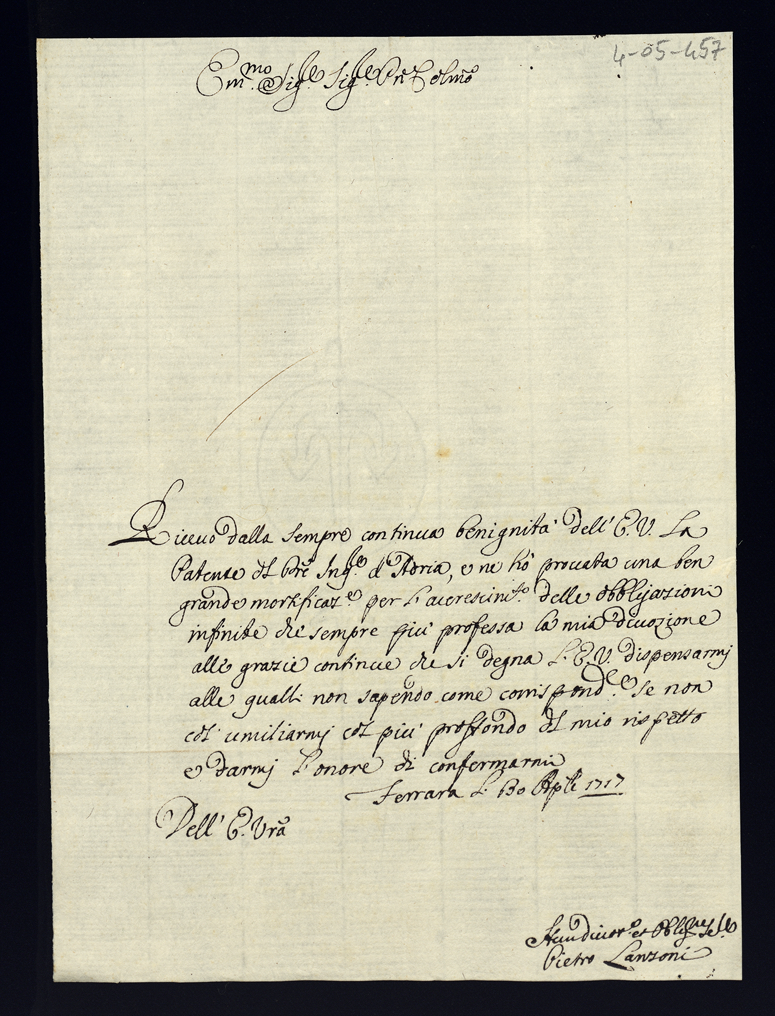 4-05-457
Em.mo Sig.re Sig.re Pne Colmo
Riceuo dalla sempre continua benignità dell' E. V. La
Patente di Pre Ing.re d'Adria, e ne hò prouata una ben
grande mortificaz.e per l'accrescim.to delle obbligazioni
infinite chè sempre più professa la mia diuozione
alle grazie continue che si degna L'E. V. dispensarmj
alle qualli non sapendo come corrispond.e se non
col umiliarmj col più proffondo del mio rispetto
e darmj l'onore di confermarmi
Ferrara L. 30 Aplẽ 1717
Dell' E. Vra
et Obblig.
Pietro Lanzoni